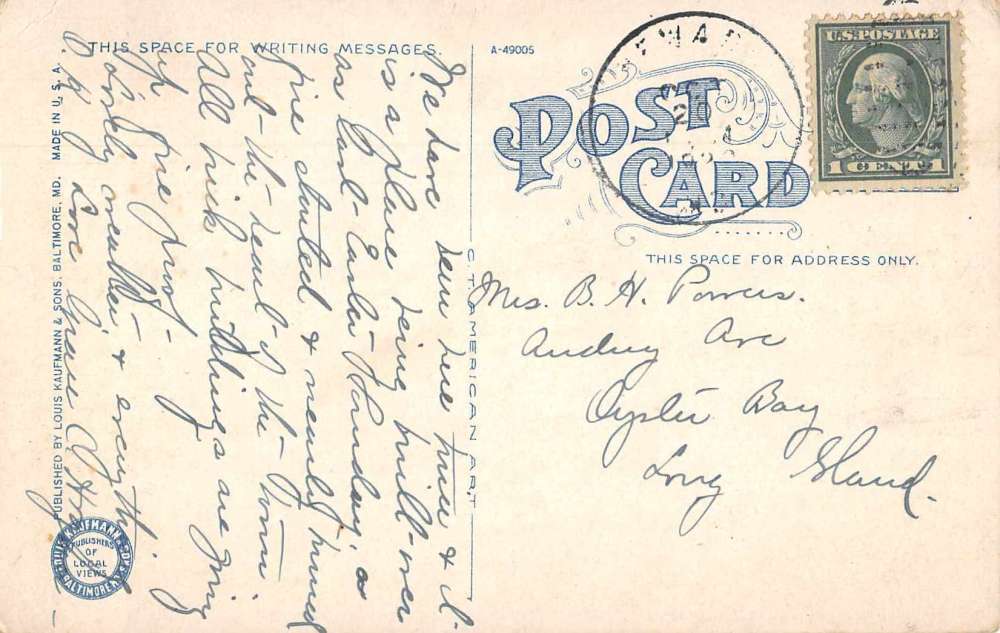 THIS SPACE FOR WRITING MESSAGES.
A-49005
POST CARD
U.S. POSTAGE
1 CENT 1
THIS SPACE FOR ADDRESS ONLY.
Mrs. B. H. Powers.
Audrey Ave
Oyster Bay
Long Island.
We have been here twice & it
is a place being built over
as last Easter Sunday; a
fire started & nearly burned
out the heart of the Town
All brick buildings are going
up fire proof.
Lovely weather & everything
O.K. Love Grace &
PUBLISHED BY LOUIS KAUFMANN & SONS, BALTIMORE, MD. MADE IN U. S. A.
C. T. AMERICAN ART
LOUIS KAUFMANN & SONS
PUBLISHERS
OF
LOCAL
VIEWS
BALTIMORE, MD.